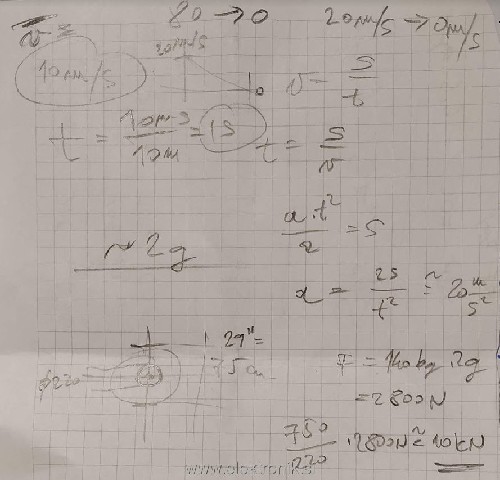 v =
80 → 0
20m/s → 0m/s
10m/s
20m/s
0
v = s/t
t = 10m·s/10m = 1s
t = s/v
a·t²/2 = s
~ 2g
a = 2s/t² ≅ 20 m/s²
29" =
75cm
ϕ220
F = 140kg · 2g
= 2800N
750/220 · 2800N ≅ 10kN